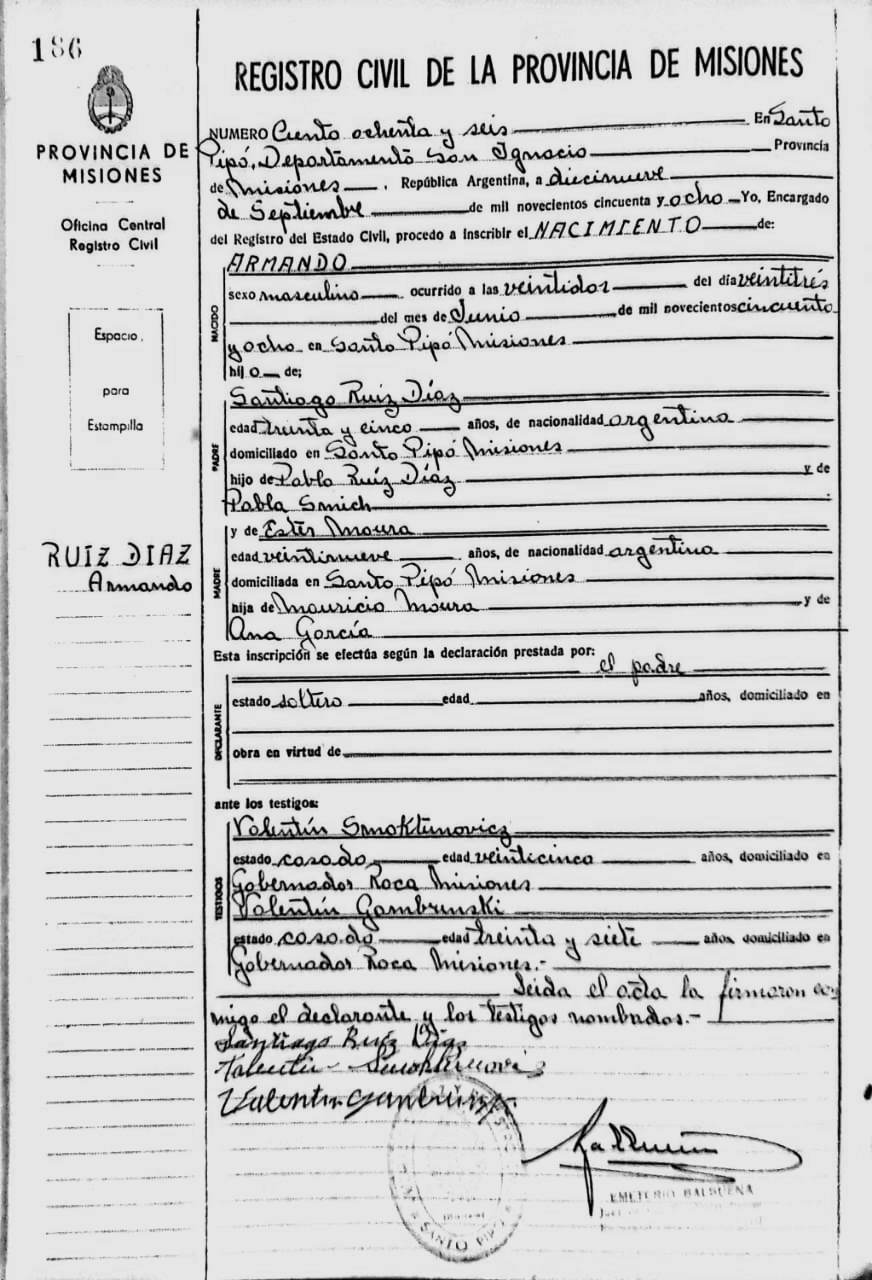 186
PROVINCIA DE
MISIONES
Oficina Central
Registro Civil
Espacio
para
Estampilla
RUIZ DIAZ
Armando
REGISTRO CIVIL DE LA PROVINCIA DE MISIONES
NUMERO Ciento ochenta y seis En Santo
Pipó, Departamento San Ignacio Provincia
de Misiones, República Argentina, a diecinueve
de Septiembre de mil novecientos cincuenta y ocho Yo, Encargado
del Registro del Estado Civil, procedo a inscribir el NACIMIENTO de:
NACIDO
ARMANDO
sexo masculino ocurrido a las veintidos del día veintitrés
del mes de Junio de mil novecientos cincuenta
y ocho en Santo Pipó Misiones
hijo de;
PADRE
Santiago Ruiz Díaz
edad treinta y cinco años, de nacionalidad argentina
domiciliado en Santo Pipó Misiones
hijo de Pablo Ruíz Díaz y de
Pabla Smich
MADRE
y de Ester Moura
edad veintinueve años, de nacionalidad argentina
domiciliada en Santo Pipó Misiones
hija de Mauricio Moura y de
Ana García
Esta inscripción se efectúa según la declaración prestada por:
el padre
DECLARANTE
estado soltero edad años, domiciliado en
obra en virtud de
ante los testigos:
TESTIGOS
Valentín Smoktunovicz
estado casado edad veinticinco años, domiciliado en
Gobernador Roca Misiones
Valentín Gambrunski
estado casado edad treinta y siete años domiciliado en
Gobernador Roca Misiones.-
Leida el acta la firmaron con
migo el declarante y los testigos nombrados.-
Santiago Ruíz Días
Valentin
Valentin
SANTO PIPO
EMETERIO BALBUENA